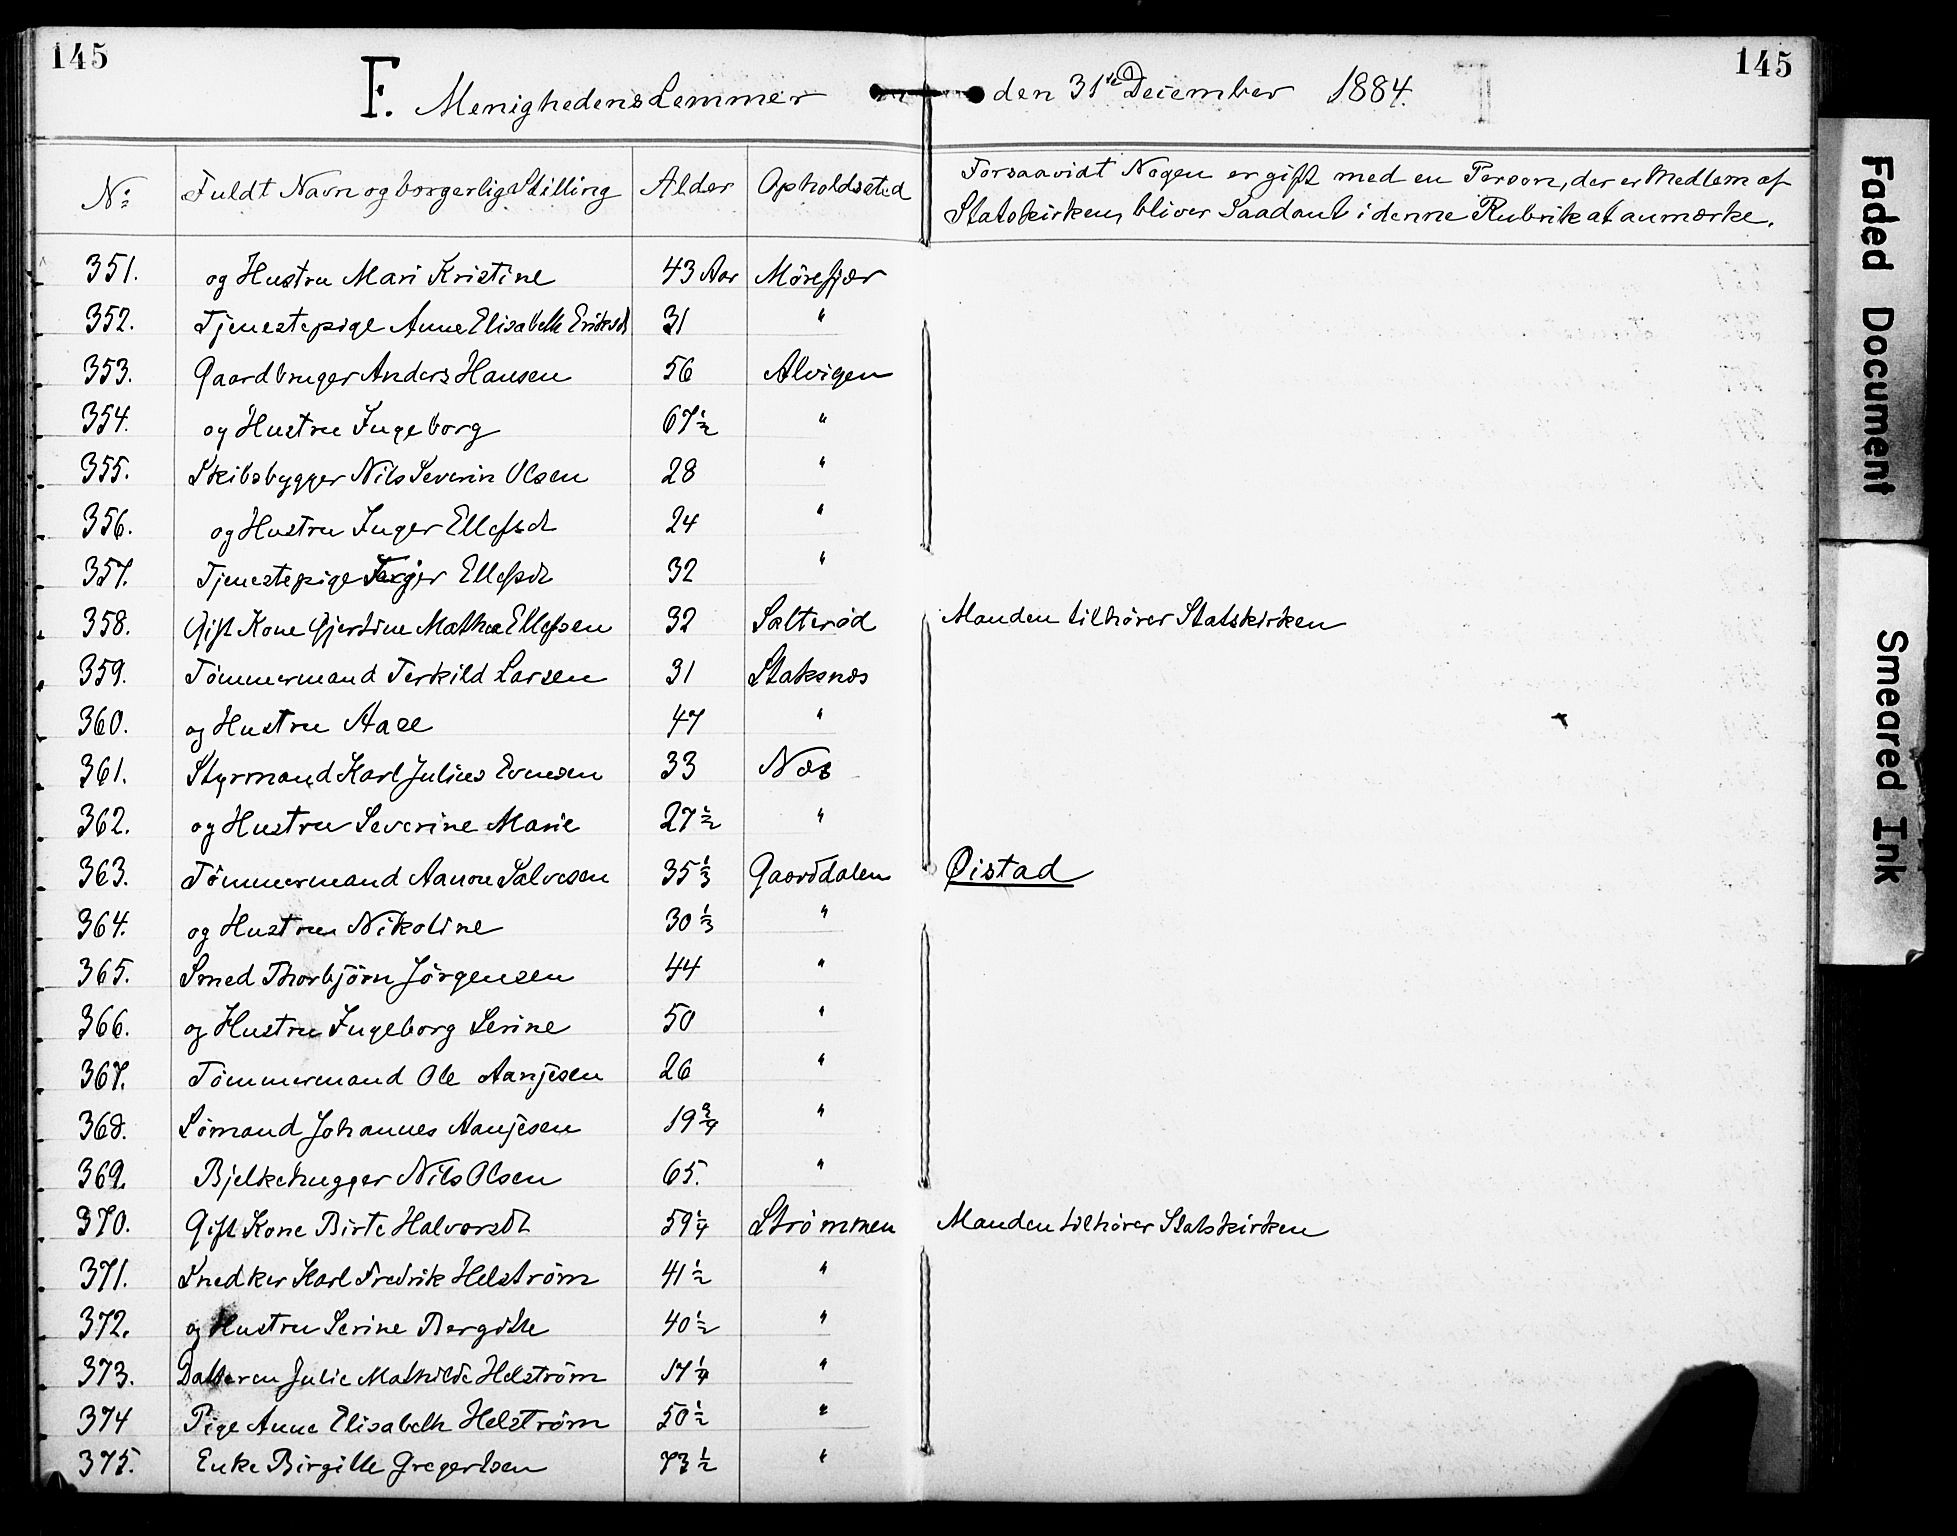 145
145
F. Menighedens Lemmer den 31te December 1884.
No Fuldt Navn og borgerlig Stilling Alder Opholdssted Forsaavidt Nogen er gift med en Person, der er Medlem af
Statskirken, bliver Saadant i denne Rubrik at anmærke.
351. og Hustru Mari Kristine 43 Aar Mörefjær
352. Tjenestepige Anne Elisabeth Eriksdt 31 "
353. Gaardbruger Anders Hansen 56 Alvigen
354. og Hustru Ingeborg 67½ "
355. Skibsbygger Nils Severin Olsen 28 "
356. og Hustru Inger Ellefsdt 24 "
357. Tjenestepige Ellefsdt 32 "
358. Gift Kone Gjertine Mathea Ellefsen 32 Salterød Manden tilhører Statskirken
359. Tömmermand Terkild Larsen 31 Staksnæs
360. og Hustru Aase 47 "
361. Styrmand Karl Julius Evensen 33 Næs
362. og Hustru Severine Marie 27½ "
363. Tömmermand Aanon Salvesen 35⅓ Gaarddalen Øistad
364. og Hustru Nikoline 30⅓ "
365. Smed Thorbjörn Jörgensen 44 "
366. og Hustru Ingeborg Serine 50 "
367. Tömmermand Ole Aanjesen 26 "
368. Sömand Johannes Aanjesen 19¾ "
369. Bjelkehugger Nils Olsen 65. "
370. Gift Kone Birte Halvorsdt 59¼ Strömmen Manden tilhører Statskirken
371. Snedker Karl Fredrik Helström 41½ "
372. og Hustru Serine Bergitte 40½ "
373. Datteren Julie Mathilde Helström 17¼ "
374 Pige Anne Elisabeth Helström 50½ "
375. Enke Birgitte Gregertsen 73½ "
Faded Document
Smeared Ink